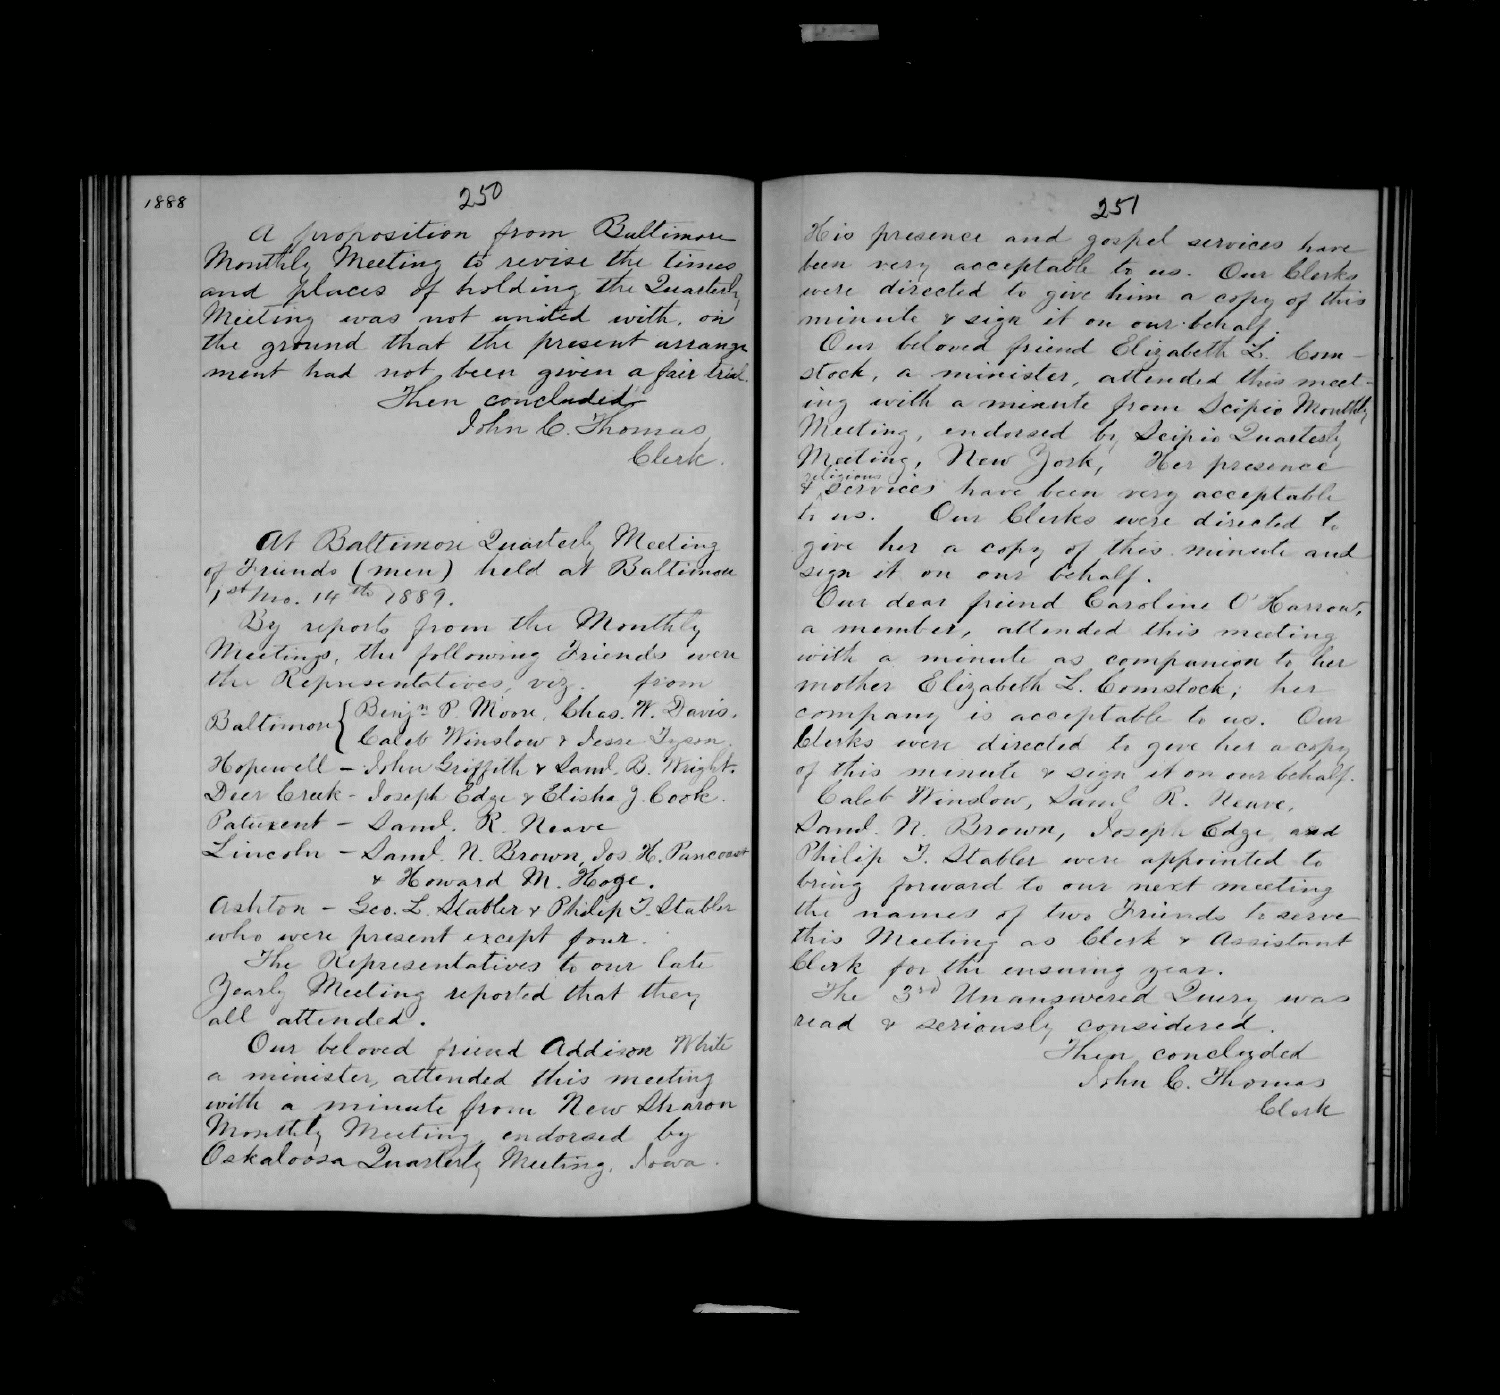 1888
250
A proposition from Baltimore
Monthly Meeting to revise the times
and places of holding the Quarterly
Meeting was not united with, on
the ground that the present arrange
ment had not been given a fair trial.
Then concluded
John C. Thomas
Clerk.
At Baltimore Quarterly Meeting
of Friends (men) held at Baltimore
1st Mo. 14th 1889.
By reports from the Monthly
Meetings, the following Friends were
the Representatives, viz. from
Baltimore { Benjn P. Moore, Chas. W. Davis.
Caleb Winslow & Jesse Tyson.
Hopewell - John Griffith & Saml. B. Wright.
Deer Creek - Joseph Edge & Elisha J. Cook.
Patuxent - Saml. R. Neave
Lincoln - Saml. N. Brown, Jos. H. Pancoast
& Howard M. Hoge.
Ashton - Geo. L. Stabler & Philip T. Stabler
who were present except four.
The Representatives to our late
Yearly Meeting reported that they
all attended.
Our beloved friend Addison White
a minister, attended this meeting
with a minute from New Sharon
Monthly Meeting, endorsed by
Oskaloosa Quarterly Meeting, Iowa.
251
His presence and gospel services have
been very acceptable to us. Our Clerks
were directed to give him a copy of this
minute & sign it on our behalf.
Our beloved friend Elizabeth L. Com-
stock, a minister, attended this meet-
ing with a minute from Scipio Monthly
Meeting, endorsed by Scipio Quarterly
Meeting, New York, Her presence
& religious services have been very acceptable
to us. Our Clerks were directed to
give her a copy of this minute and
sign it on our behalf.
Our dear friend Caroline O'Harrow,
a member, attended this meeting
with a minute as companion to her
mother Elizabeth L. Comstock; her
company is acceptable to us. Our
Clerks were directed to give her a copy
of this minute & sign it on our behalf.
Caleb Winslow, Saml. R. Neave,
Saml. N. Brown, Joseph Edge, and
Philip T. Stabler were appointed to
bring forward to our next meeting
the names of two Friends to serve
this Meeting as Clerk & Assistant
Clerk for the ensuing year.
The 3rd Unanswered Query was
read & seriously considered.
Then concluded
John C. Thomas
Clerk